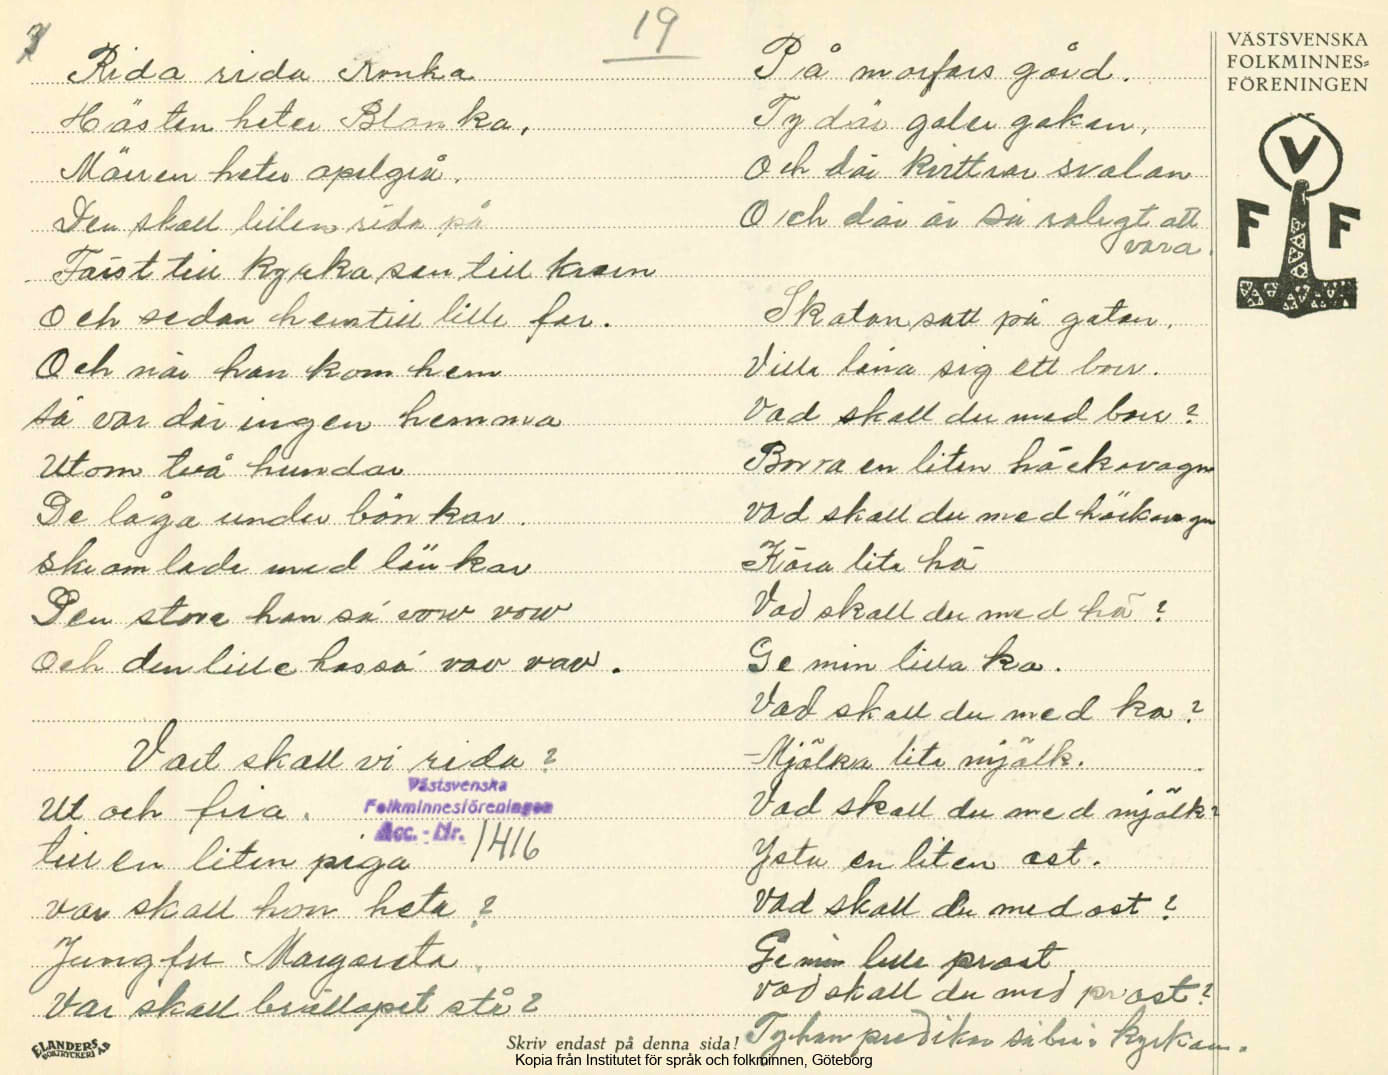 3
19
Rida rida Ronka
Hästen heter Blanka.
Märren heter apelgrå.
Den skall lillen rida på
Först till kyrka sen till kvarn
Och sedan hem till lille far.
Och när han kom hem
så var där ingen hemma
Utom två hundar
De låga under bänkar.
skramlade med länkar
Den store han sa vow vow
Och den lille han sa vov vov.
Vart skall vi rida?
Ut och fira.
till en liten piga
var skall hon heta?
Jungfru Margareta.
Var skall bröllopet stå?
Västsvenska
Folkminnesföreningen
Acc. - Nr. 1416
ELANDERS
BOKTRYCKERI AB
Skriv endast på denna sida!
På morfars gård.
Ty där galer gaken.
Och där kvittrar svalan
Och där är så roligt att
vara.
Skatan satt på gatan.
Ville låna sig ett borr.
Vad skall du med borr?
Borra en liten häckavagn
Vad skall du med häckavagn
Köra lite hö
Vad skall du med hö?
Ge min lilla ko.
Vad skall du med ko?
Mjölka lite mjölk.
Vad skall du med mjölk?
Ysta en liten ost.
Vad skall du med ost?
Ge min lille prost
Vad skall du med prost?
Ty han predikar så bra i kyrkan.
VÄSTSVENSKA
FOLKMINNES-
FÖRENINGEN
V
F F
Kopia från Institutet för språk och folkminnen, Göteborg